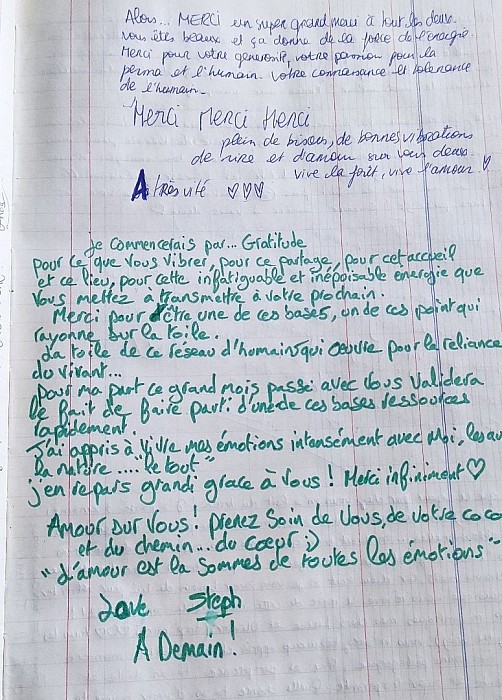 Alors... MERCI un super grand merci à tout les deux.
Vous êtes beaux et ça donne de la force de l'énergie.
Merci pour votre générosité, votre passion pour la
perma et l'humain. Votre connaissance et tolérance
de l'humain.
Merci Merci Merci
plein de bisous, de bonnes vibrations
de rire et d'amour sur vous deux.
vive la forêt, vive l'amour
A très vite ♡♡♡
Je commencerais par... Gratitude
pour ce que vous vibrer, pour ce partage, pour cet accueil
et ce lieu, pour cette infatiguable et inépoisable énergie que
vous mettez à transmettre à votre prochain.
Merci pour être une de ces bases, un de ces point qui
rayonne sur la toile.
La toile de ce réseau d'humains qui oeuvre pour la reliance
du vivant...
pour ma part ce grand mois passé avec vous validera
le fait de faire parti d'une de ces bases ressources
rapidement.
J'ai appris à vivre mes émotions intensément avec moi, les au
la nature .... le tout"
j'en repars grandi grace à vous ! Merci infiniment ♡
Amour sur Vous ! prenez Soin de Vous, de votre coco
et du chemin... du Coeur ;)
"L'amour est la Sommes de toutes les émotions"
Love Steph
A Demain !